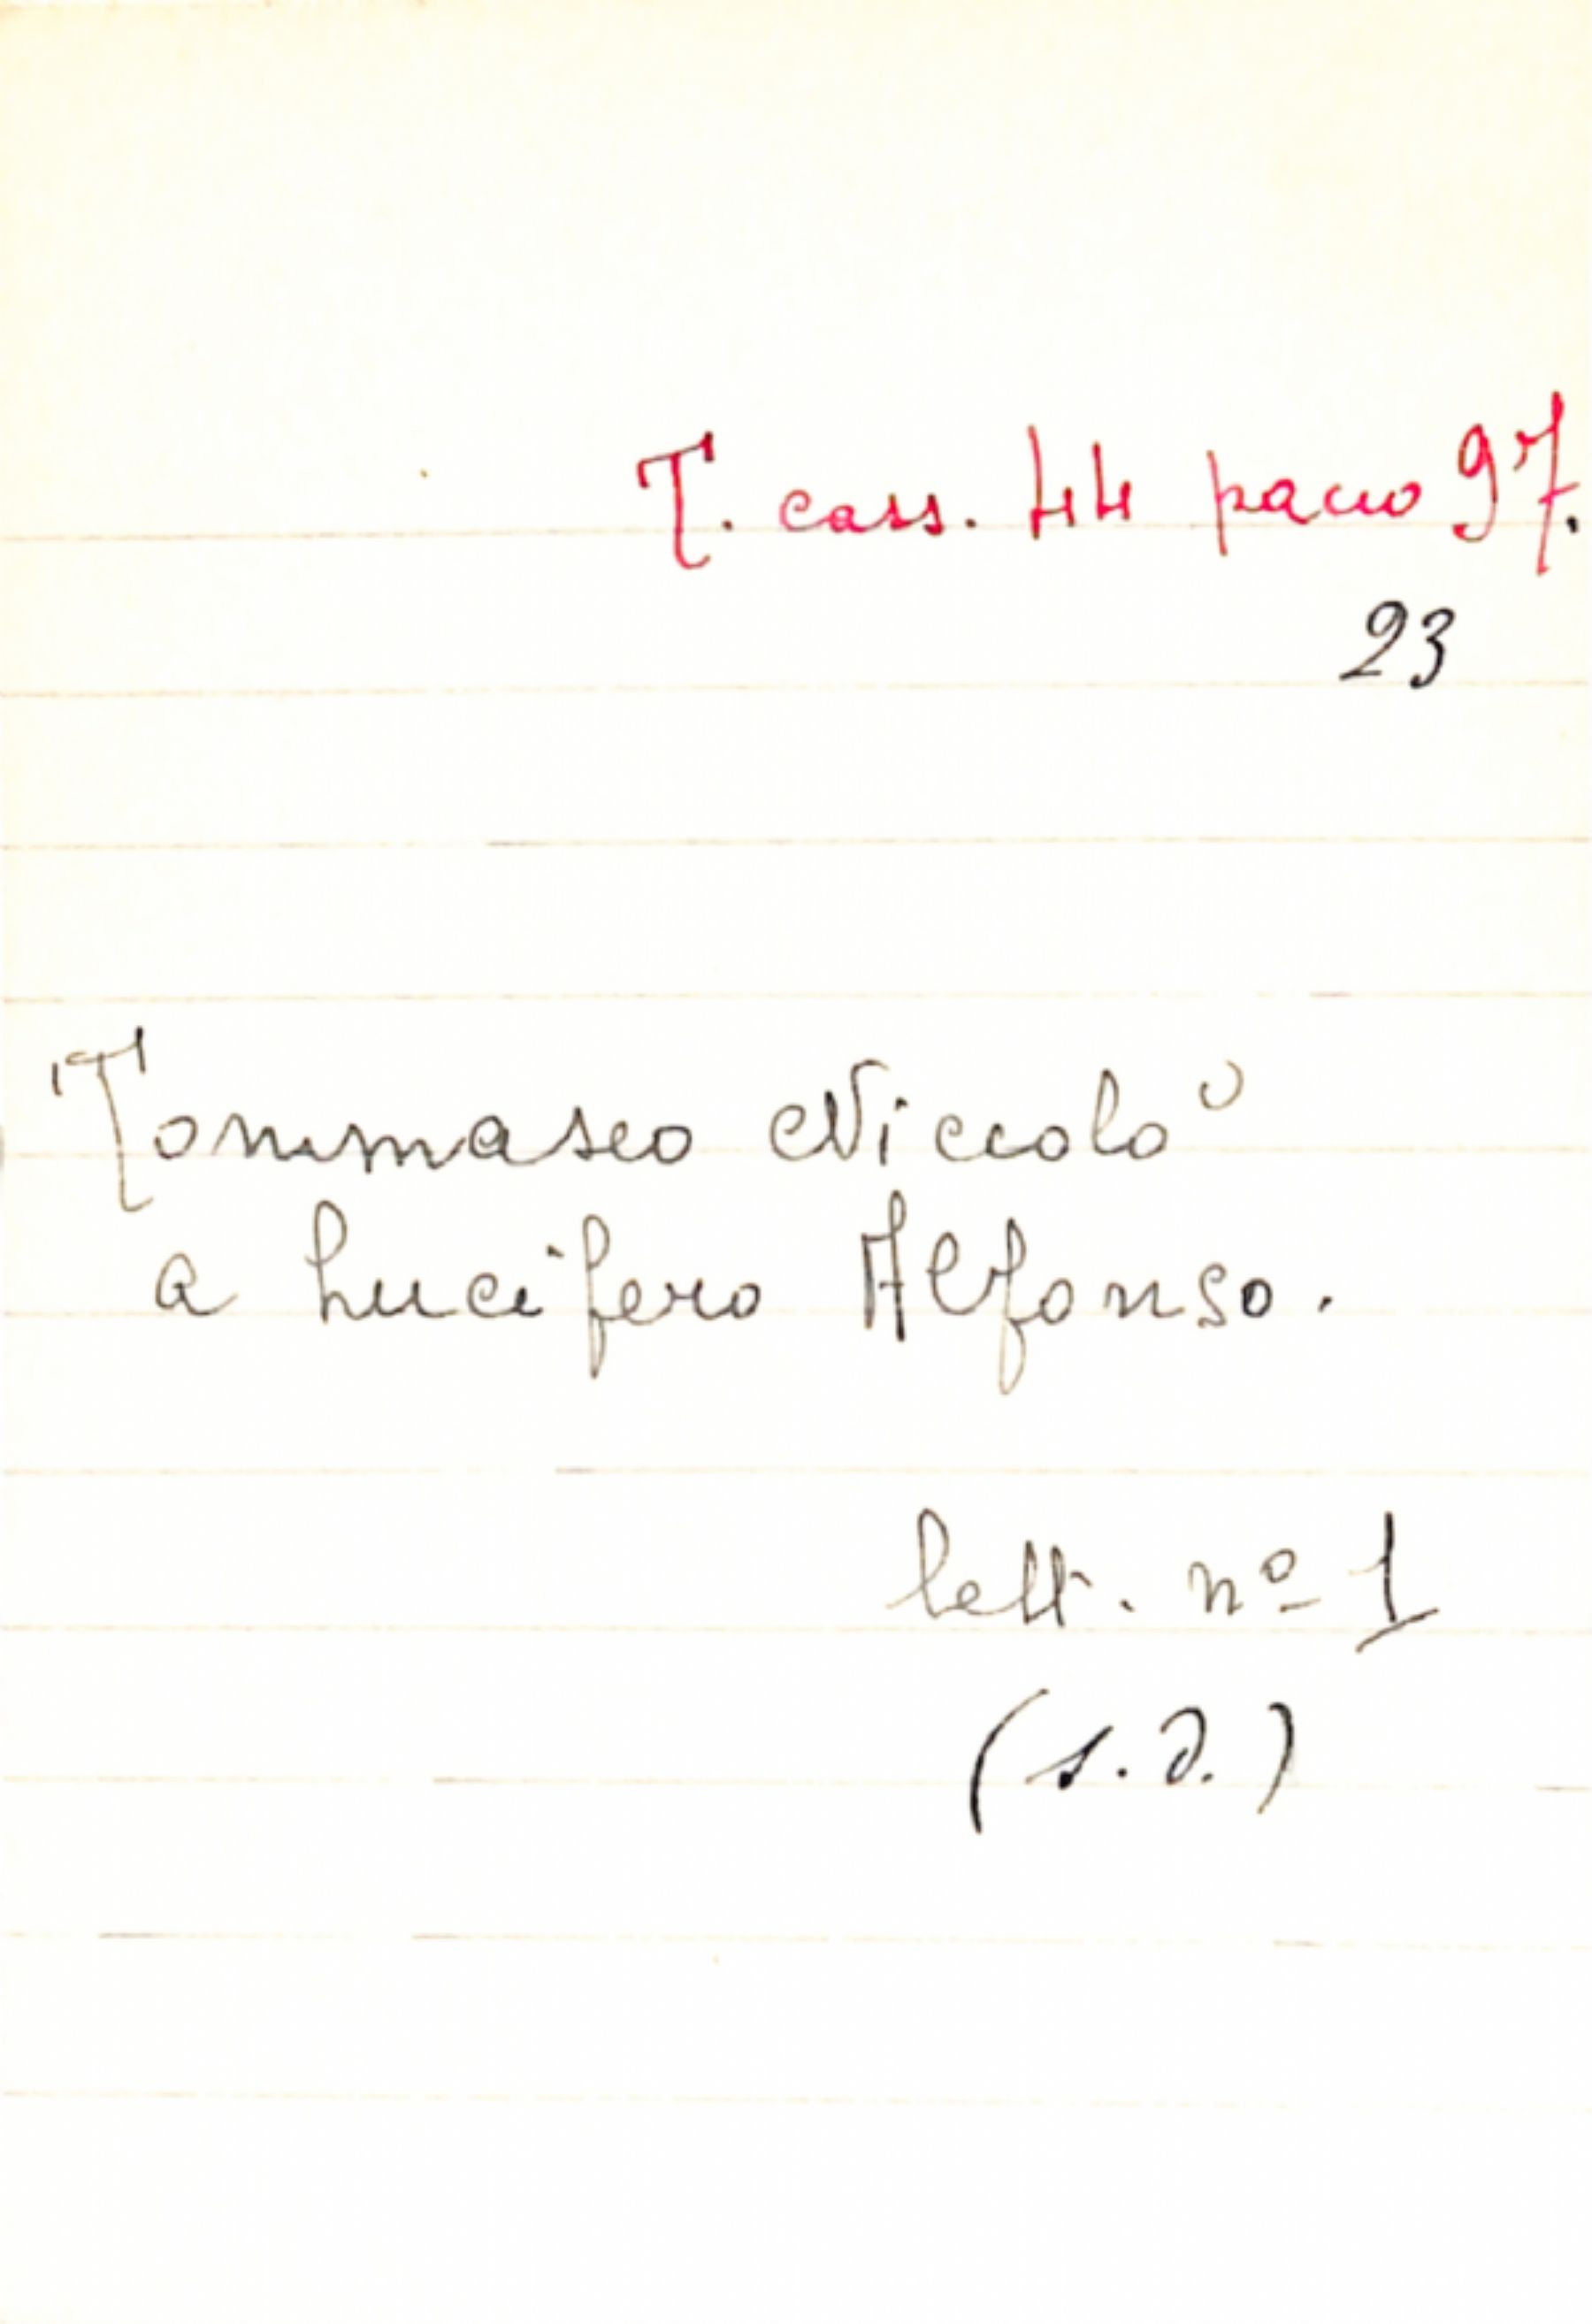 T. cass. 44 pacco 97.
23
Tommaseo Niccolò
a Lucifero Alfonso.
lett. nº 1
(s.d.)